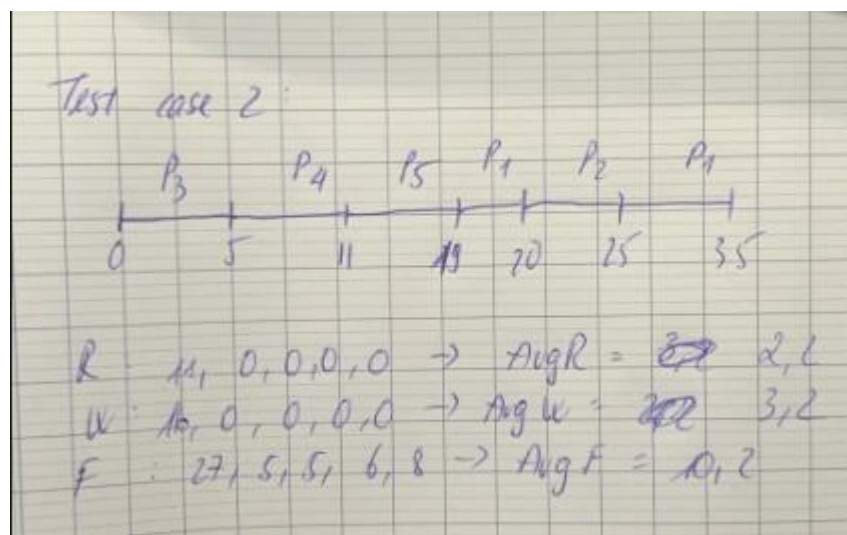 Test case 2:
P3 P4 P5 P1 P2 P1
0 5 11 19 20 25 35
R : 11, 0, 0, 0, 0 → AvgR = 2,2
W : 16, 0, 0, 0, 0 → Avg W = 3,2
F : 27, 5, 5, 6, 8 → Avg F = 10,2